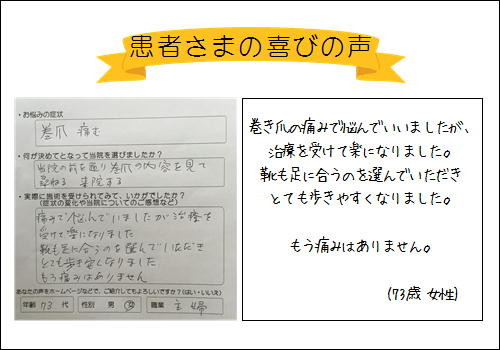 患者さまの喜びの声
・お悩みの症状
巻爪 痛む
・何が決めてとなって当院を選びましたか？
当院の前を通り巻爪の内容を見て
尋ねる 来院する
・実際に施術を受けられてみて、いかがでしたか？
(症状の変化や当院についてのご感想など)
痛みで悩んでいましたが治療を
受けて楽になりました
靴も足に合うのを選んでいただき
とても歩き安くなりました
もう痛みはありません
あなたの声をホームページなどで、ご紹介してもよろしいですか？(はい・いいえ)
年齢 73 代 性別 男 女 職業 主婦
巻き爪の痛みで悩んでいいましたが、
治療を受けて楽になりました。
靴も足に合うのを選んでいただき
とても歩きやすくなりました。
もう痛みはありません。
(73歳 女性)